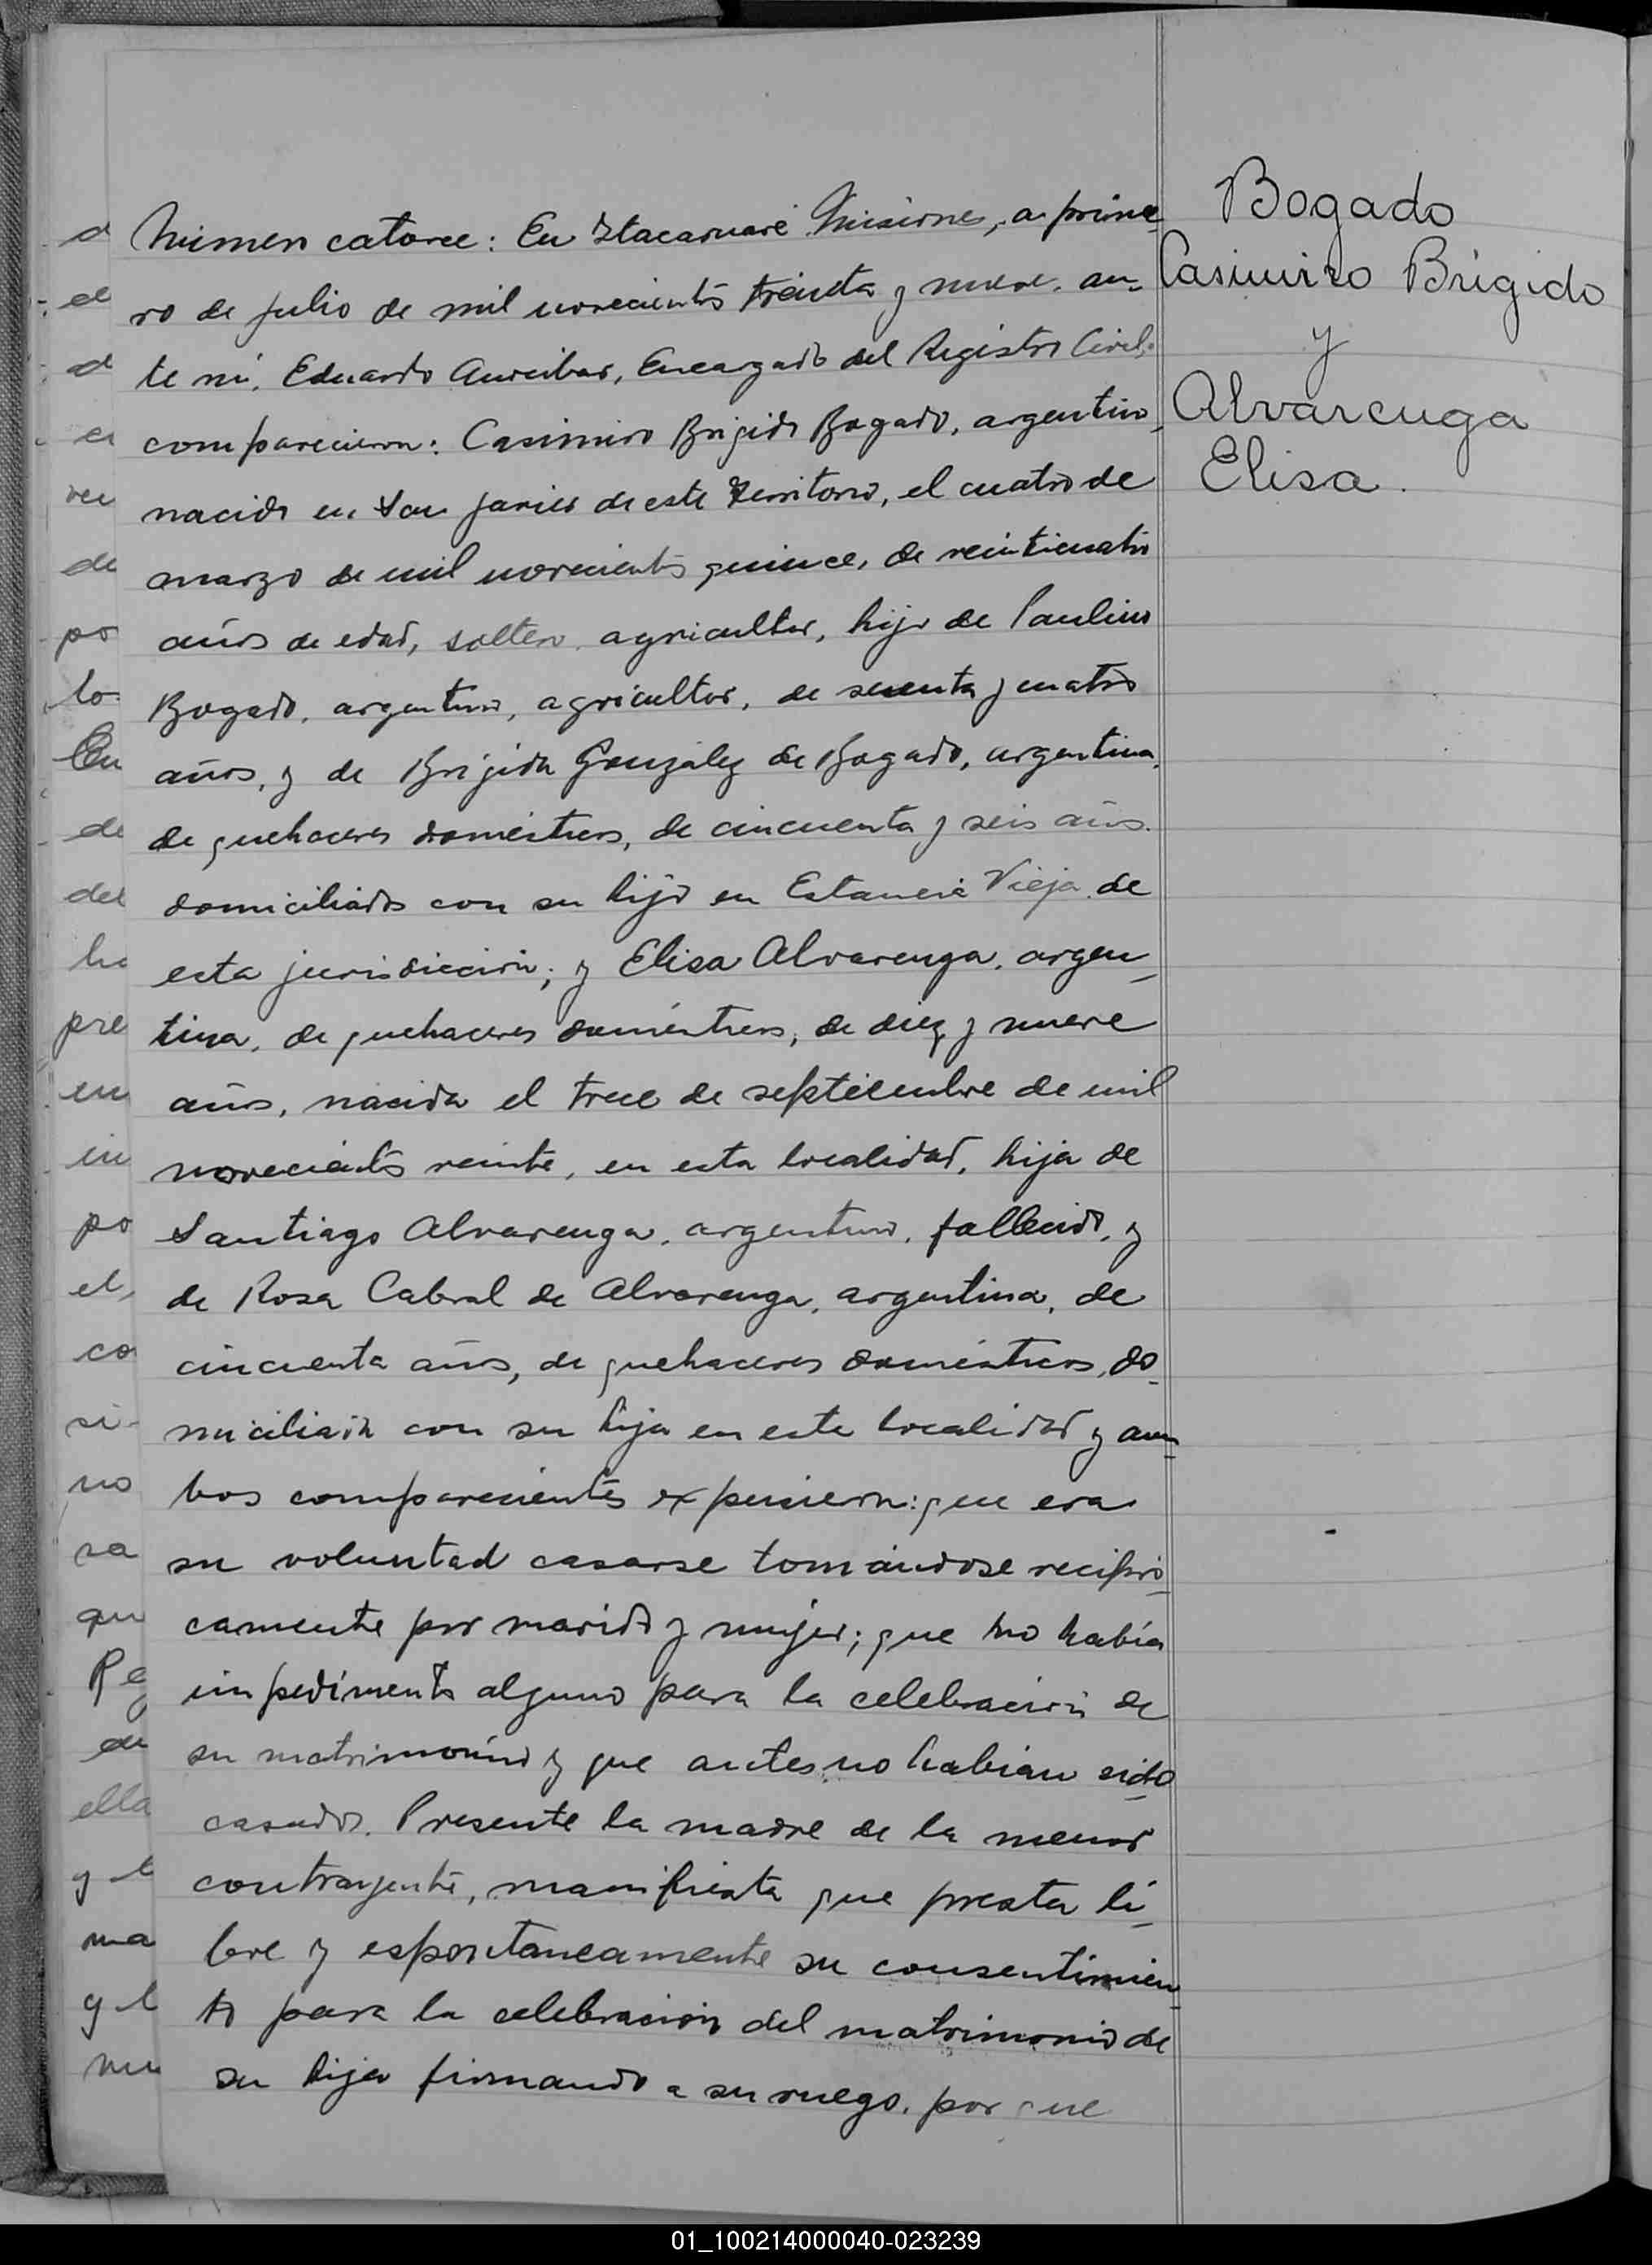 Número catorce: En Itacaruaré Misiones, a prime
ro de julio de mil novecientos treinta y nueve, an-
te mí, Eduardo Encargado del Registro Civil,
comparecieron: Casimiro Brígido Bogado, argentino,
nacido en San Javier de este Territorio, el cuatro de
marzo de mil novecientos quince, de veinticuatro
años de edad, soltero, agricultor, hijo de Paulino
Bogado, argentino, agricultor, de y cuatro
años, y de Brígida González de Bogado, argentina,
de quehaceres domésticos, de cincuenta y seis años.
domiciliados con su hijo en Estancia Vieja de
esta jurisdicción; y Elisa Alvarenga, argen-
tina, de quehaceres domésticos, de diez y nueve
años, nacida el trece de septiembre de mil
novecientos veinte, en esta localidad, hija de
Santiago Alvarenga, argentino, fallecido, y
de Rosa Cabral de Alvarenga, argentina, de
cincuenta años, de quehaceres domésticos, do-
miciliada con su hija en esta localidad y am-
bos comparecientes expusieron: que era
su voluntad casarse tomándose recípro-
camente por marido y mujer; que no había
impedimento alguno para la celebración de
su matrimonio y que antes no habían sido
casados. Presente la madre de la menor
contrayente, manifiesta que presta li-
bre y espontaneamente su consentimien-
to para la celebración del matrimonio de
su hija firmando a su ruego, por que
Bogado
Casimiro Brígido
y
Alvarenga
Elisa.
d
el
d
en
ven
de
po
lo
En
de
del
ha
pre
en
in
po
el,
co
si-
no
sa
qu
Re
de
ella
y l
ma
y l
nu
01_100214000040-023239